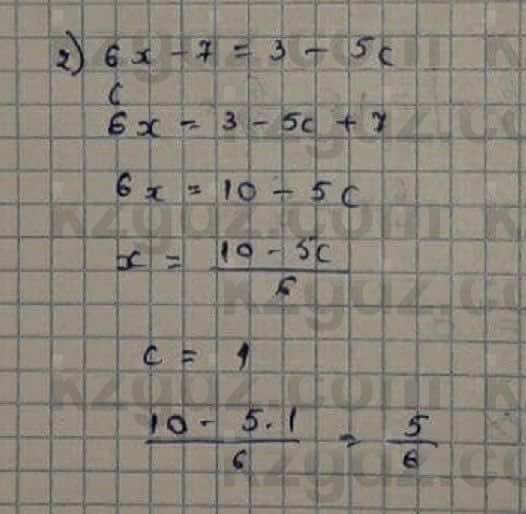 2) 6x - 7 = 3 - 5c
c
6x = 3 - 5c + 7
6x = 10 - 5c
x = (10 - 5c)/6
c = 1
(10 - 5 · 1)/6 = 5/6
kzgdz.com